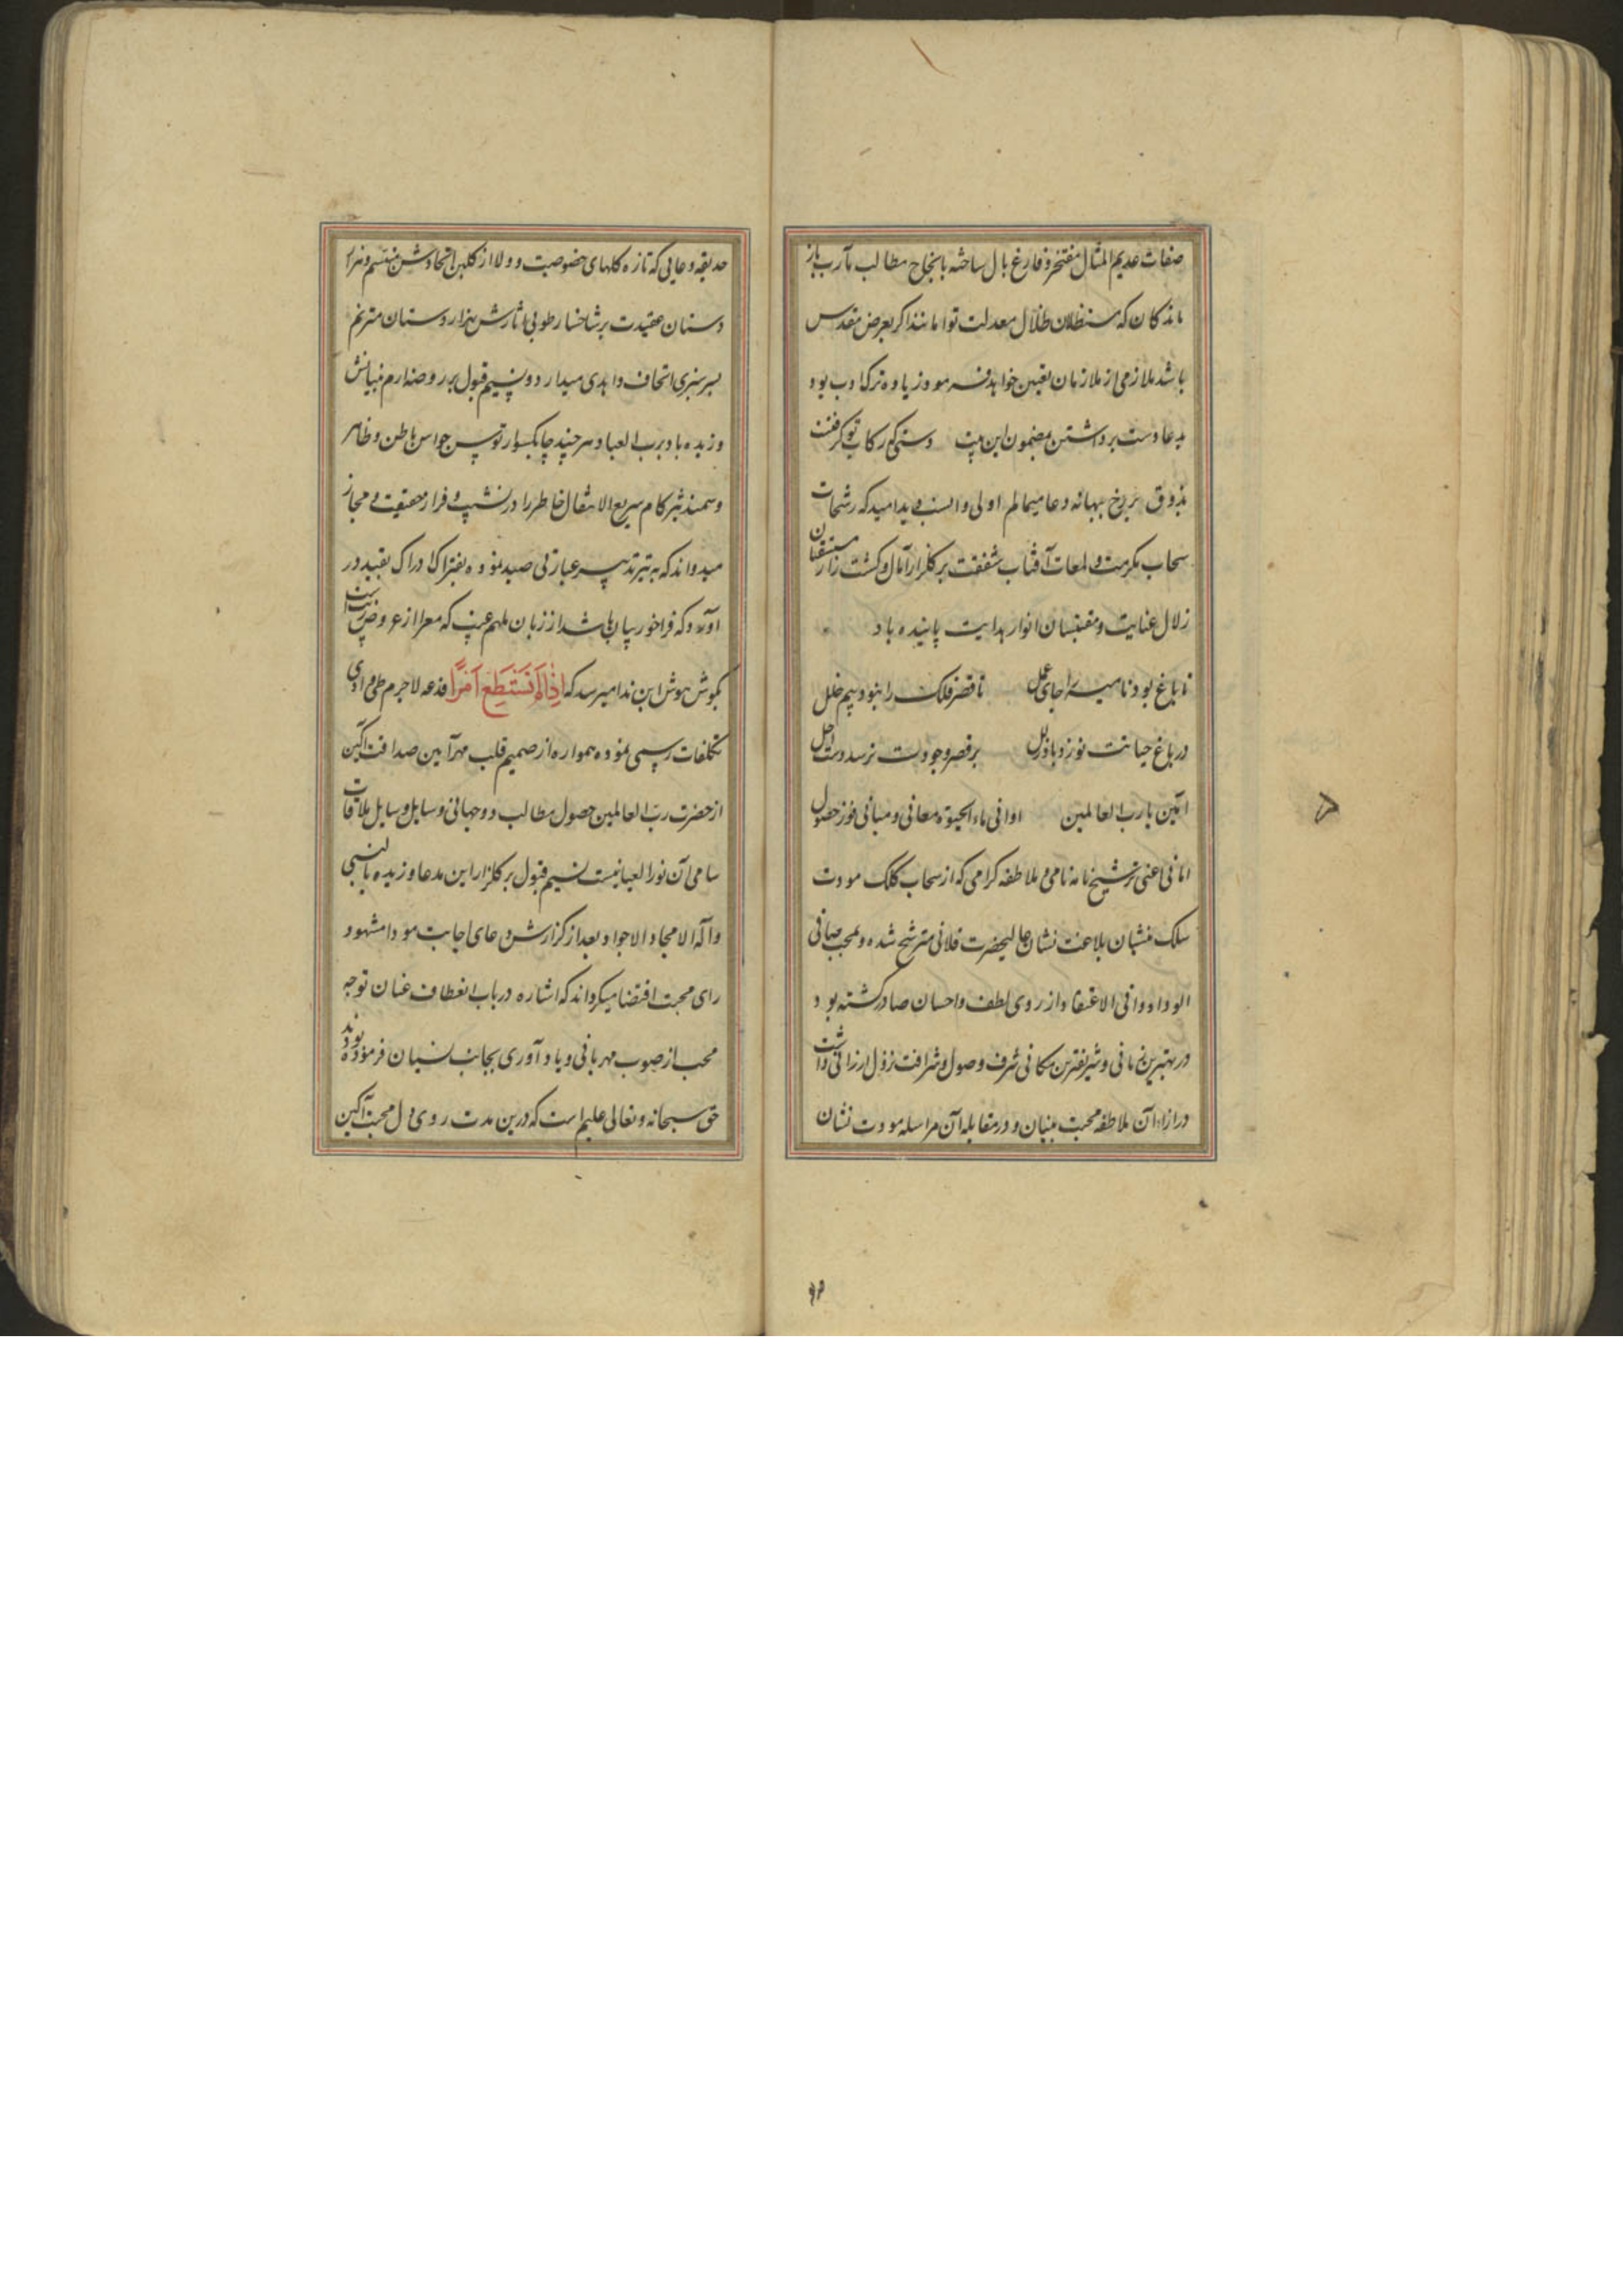 صفات عدیم المثال مفتخر و فارغ بال ساخته بانجاح مطالب مآرب باز
ماندکان که مستظلان ظلال معدلت تواما نند اکر بعرض مقدس
باشد ملازمی از ملازمان تعیین خواهد فرمود زیاده ترک ادب بود
بدعا دست برداشتن مضمون این بیت دستی که رکاب تو کرفتت
بذوق بهانه دعا میمالم اولی و انسب دید امید که رشحات
سحاب مکرمت و لمعات آفتاب شفقت بر کلزار آمال و کشت زار مستسقیان
زلال عنایت و مقتبسان انوار هدایت پاینده باد
تا باغ بود نامیه را جای عمل تا قصر فلک را نبود بیم خلل
در باغ حیاتت نوزد باد بر قصر وجودت نرسد دست اجل
آمین یا رب العالمین اوانی ماء الحیوة معانی و مبانی فوز حصول
امانی اعنی ترشیح نامه نامی و ملاطفه کرامی که از سحاب کلک مودت
سلک منشیان بلاغت نشان عالیحضرت فلانی مترشح شده و بمحب صافی
الوداد و وافی الاعتقاد از روی لطف و احسان صادر کشته بود
در بهترین زمانی و شریفترین مکانی شرف وصول و شرافت نزول ارزانی داشت
در ازاء آن ملاطفه محبت بنیان و در مقابله آن مراسله مودت نشان
۹۴
حدیقه دعایی که تازه کلهای خصوصیت و ولا از کلبن اتحادش متبسم و هزار
دستان عقیدت بر شاخسار طوبی آثارش هزار دستان مترنم
بسرسبزی اتحاف و اهدی میدارد و نسیم قبول بر روضه ارم بنیانش
وزیده باد برب العباد هر چند چابکسوار توسن حواس باطن و ظاهر
و سمند تیزکام سریع الانتقال خاطر را در نشیب و فراز حقیقت و مجاز
میدواند که به تیر تدبیر عبارتی صید نموده بفتراک ادراک بقید در
آورد که فراخور بیان باشد از زبان ملهم غیب که معرا از
بکوش هوش این ندا میرسد که اِذَا لَمْ تَسْتَطِعْ اَمْرًا فدعه لاجرم طی وادی
تکلفات رسمی نموده همواره از صمیم قلب مهر آیین صداقت آکین
از حضرت رب العالمین حصول مطالب دوجهانی و سایل وسایل ملاقات
سامی آن نور العیانیست نسیم قبول بر کلزار این مدعا وزیده بالنبی
و آله الامجاد الاجواد بعد از کزارش دعای اجابت مودا مشهود
رای محبت اقتضا میکرداند که اشاره در باب انعطاف عنان توجه
محب از صوب مهربانی و یادآوری بجانب نسیان فرموده بودند
حق سبحانه و تعالی علیم است که درین مدت روی دل محبت آکین